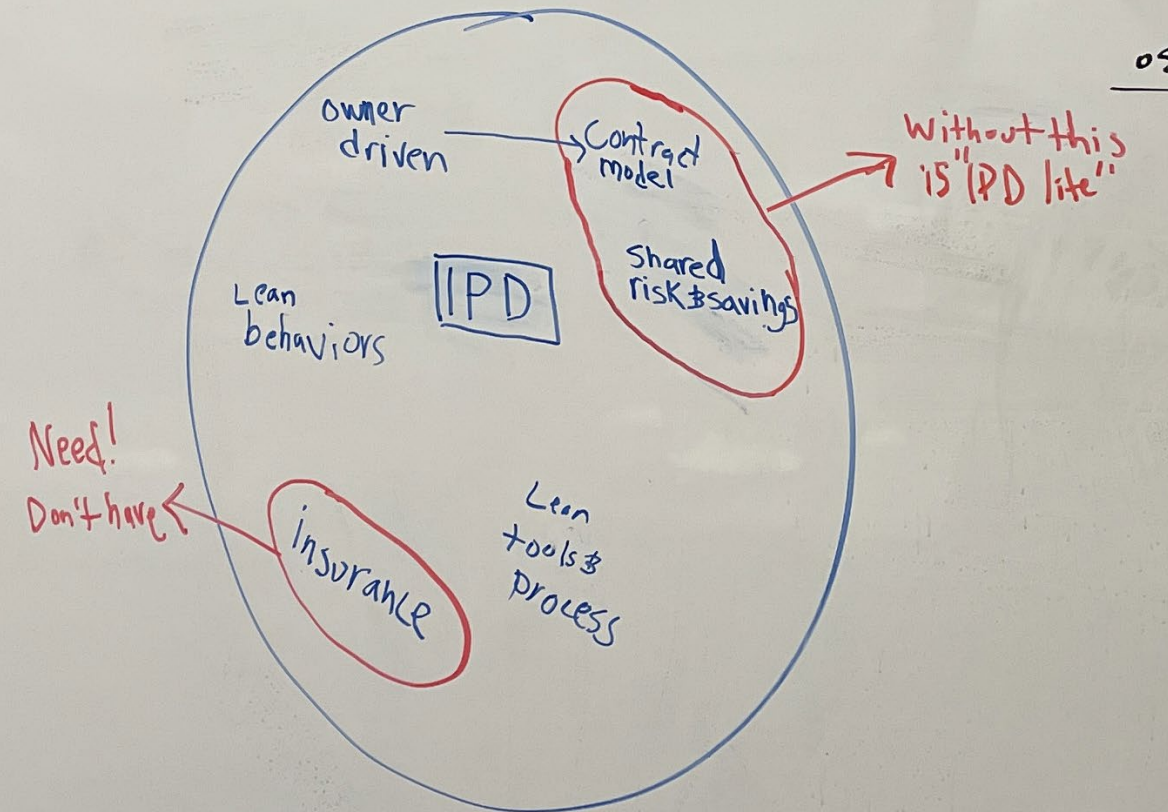 owner
driven
Contract
model
Without this
is "IPD lite"
Shared
risk & savings
IPD
Lean
behaviors
Need!
Don't have
insurance
Lean
tools &
process